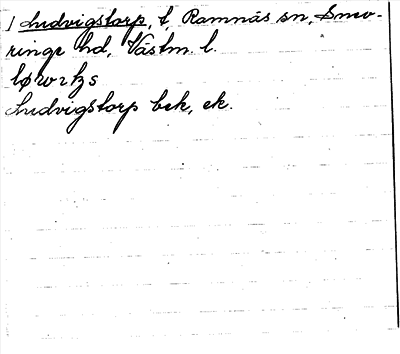 1 Ludvigstorp, t, Ramnäs sn, Snev-
ringe hd, Västm. l.
Ludvigstorp bek, ek.